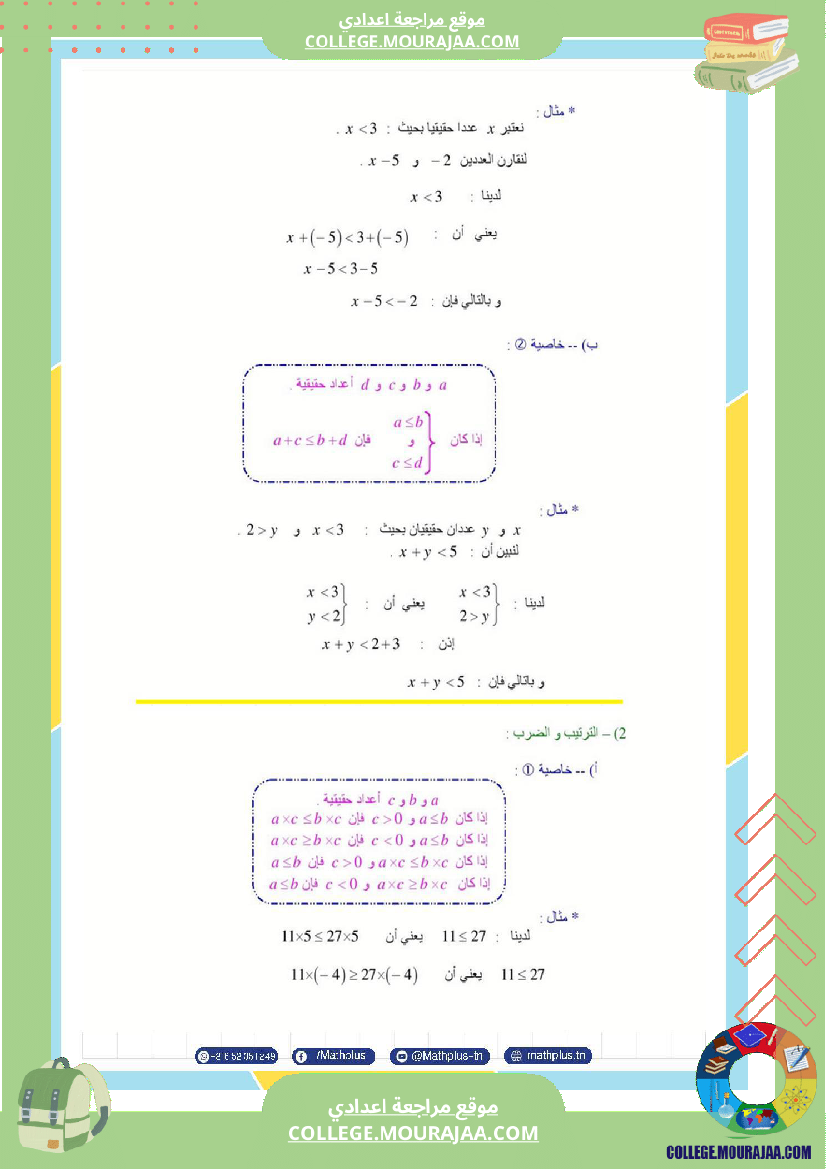 موقع مراجعة اعدادي
COLLEGE.MOURAJAA.COM
* مثال :
نعتبر x عددا حقيقيا بحيث : x < 3 .
لنقارن العددين 2 − و x − 5 .
لدينا : x < 3
يعني أن : x + (− 5) < 3 + (− 5)
x − 5 < 3 − 5
و بالتالي فإن : x − 5 < − 2
ب) -- خاصية ② :
a و b و c و d أعداد حقيقية .
إذا كان a ≤ b و c ≤ d فإن a + c ≤ b + d
* مثال :
x و y عددان حقيقيان بحيث : x < 3 و 2 > y .
لنبين أن : x + y < 5 .
لدينا : x < 3 يعني أن : x < 3
2 > y y < 2
إذن : x + y < 2 + 3
و باتالي فإن : x + y < 5
2) – الترتيب و الضرب :
أ) -- خاصية ① :
a و b و c أعداد حقيقية .
إذا كان a ≤ b و c > 0 فإن a × c ≤ b × c
إذا كان a ≤ b و c < 0 فإن a × c ≥ b × c
إذا كان a × c ≤ b × c و c > 0 فإن a ≤ b
إذا كان a × c ≥ b × c و c < 0 فإن a ≤ b
* مثال :
لدينا : 11 ≤ 27 يعني أن 11×5 ≤ 27×5
11 ≤ 27 يعني أن 11×(− 4) ≥ 27×(− 4)
/Mathplus
@Mathplus-tn
mathplus.tn
موقع مراجعة اعدادي
COLLEGE.MOURAJAA.COM
COLLEGE.MOURAJAA.COM